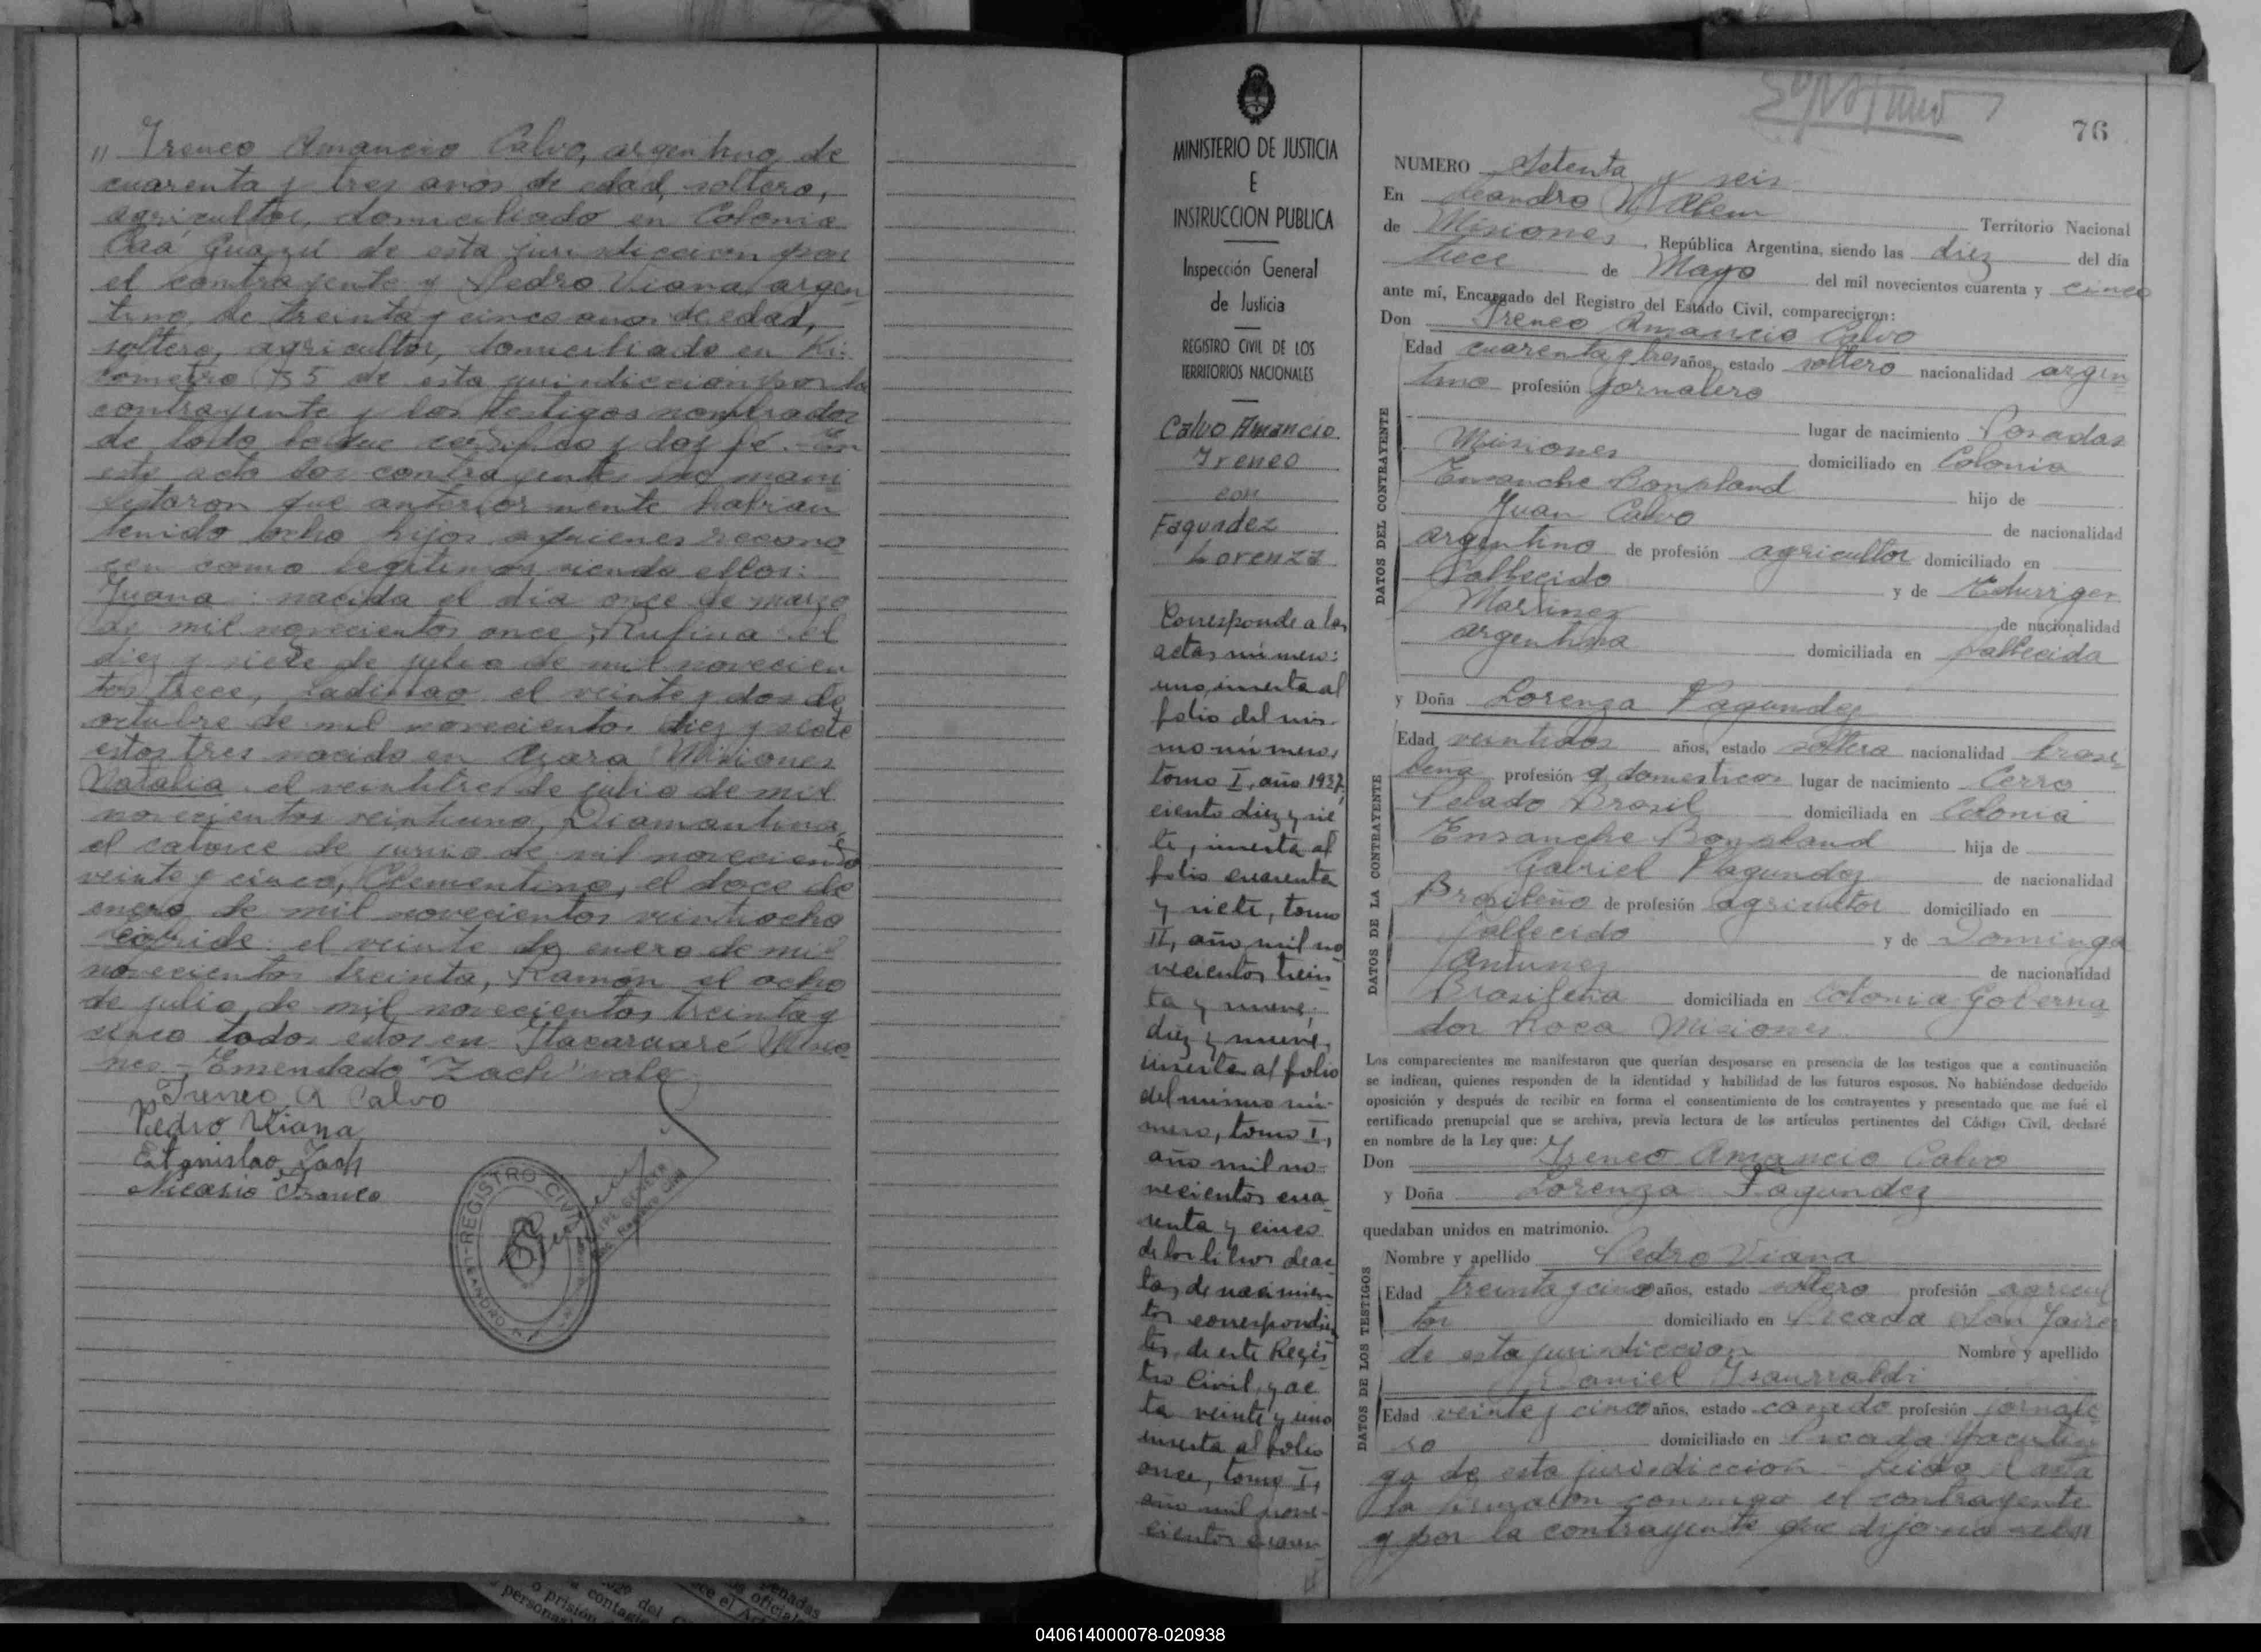 " Ireneo Amancio Calvo, argentino, de
cuarenta y tres años de edad, soltero,
agricultor, domiciliado en Colonia
Caá Guazú de esta jurisdiccion por
el contrayente y Pedro Viana, argen
tino, de treinta y cinco anos de edad,
soltero, agricultor, domiciliado en Ki-
lometro 5 de esta jurisdiccion por la
contrayente y los testigos nombrados
de todo lo que certifico y doy fé. - En
este acto los contrayentes me mani
festaron que anteriormente habian
tenido ocho hijos a quienes recono
cen como legitimos siendo ellos:
Juana: nacida el dia once de marzo
de mil novecientos once, Rufina el
diez y siete de julio de mil novecien
tos trece, Ladislao el veinte y dos de
octubre de mil novecientos diez y siete
estos tres nacido en Azara Misiones
Natalia el veintitres de julio de mil
novecientos veintiuno, Diamantina
el catorce de junio de mil novecientos
veinte y cinco, Clementina, el doce de
enero de mil novecientos veintiocho
el veinte de enero de mil
novecientos treinta, Ramón el ocho
de julio de mil novecientos treinta y
cinco todos estos en Itacaruaré Misio
nes - Emendado "Zach" vale
Ireneo A Calvo
Pedro Viana
Estanislao Zach
Nicasio Franco
REGISTRO CIVIL
MINISTERIO DE JUSTICIA
E
INSTRUCCION PUBLICA
Inspección General
de Justicia
REGISTRO CIVIL DE LOS
TERRITORIOS NACIONALES
Calvo Amancio
Ireneo
con
Fagundez
Lorenza
Corresponde a las
actas número:
uno, inserta al
folio del mis-
mo número,
tomo I, año 1937,
ciento diez y sie
te, inserta al
folio cuarenta
y siete, tomo
II, año mil no
vecientos trein
ta y nueve;
diez y nueve,
inserta al folio
del mismo nú-
mero, tomo I,
año mil no-
vecientos cua
renta y cinco
de los libros de ac
tas de nacimien
tos correspondien
tes, de este Regis
tro Civil, y ac
ta veinte y uno
inserta al folio
once, tomo I,
año mil nove-
cientos cuaren
76
NUMERO Setenta y seis
En Leandro N Alem Territorio Nacional
de Misiones, República Argentina, siendo las diez del día
trece de Mayo del mil novecientos cuarenta y cinco
ante mí, Encargado del Registro del Estado Civil, comparecieron:
Don Ireneo Amancio Calvo
DATOS DEL CONTRAYENTE
Edad cuarenta y tres años, estado soltero nacionalidad argen
tino profesión jornalero
lugar de nacimiento Posadas
Misiones domiciliado en Colonia
Ensanche Bonpland hijo de
Juan Calvo de nacionalidad
argentino de profesión agricultor domiciliado en
fallecido y de Eduvigen
Martinez de nacionalidad
argentina domiciliada en fallecida
y Doña Lorenza Fagundez
DATOS DE LA CONTRAYENTE
Edad veintidos años, estado soltera nacionalidad brasi
lena profesión q domesticos lugar de nacimiento Cerro
Pelado Brasil domiciliada en Colonia
Ensanche Bonpland hija de
Gabriel Fagundez de nacionalidad
Brasileño de profesión agricultor domiciliado en
fallecido y de Dominga
Antunez de nacionalidad
Brasileña domiciliada en Colonia Goberna
dor Roca Misiones
Los comparecientes me manifestaron que querían desposarse en presencia de los testigos que a continuación
se indican, quienes responden de la identidad y habilidad de los futuros esposos. No habiéndose deducido
oposición y después de recibir en forma el consentimiento de los contrayentes y presentado que me fué el
certificado prenupcial que se archiva, previa lectura de los artículos pertinentes del Código Civil, declaré
en nombre de la Ley que:
Don Ireneo Amancio Calvo
y Doña Lorenza Fagundez
quedaban unidos en matrimonio.
DATOS DE LOS TESTIGOS
Nombre y apellido Pedro Viana
Edad treinta y cinco años, estado soltero profesión agricul
tor domiciliado en Picada San Javier
de esta jurisdiccion Nombre y apellido
Daniel Isaurraldi
Edad veinte y cinco años, estado casado profesión jornale
ro domiciliado en Picada Yacutin
ga de esta jurisdiccion - Leida el acta
la firmaron conmigo el contrayente
y por la contrayente que dijo no saber
040614000078-020938